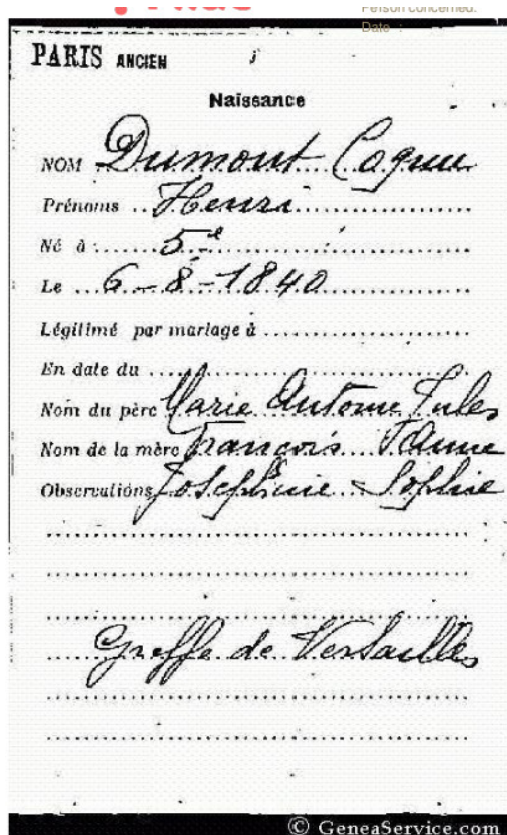 Person concerned:
Date :
PARIS ANCIEN
Naissance
NOM Dumont Cogneu
Prénoms Henri
Né à 5e
Le 6-8-1840
Légitimé par mariage à
En date du
Nom du père Marie Antoine Jules
Nom de la mère François Jeanne
Observations Josephine Sophie
Greffe de Versailles
© GeneaService.com